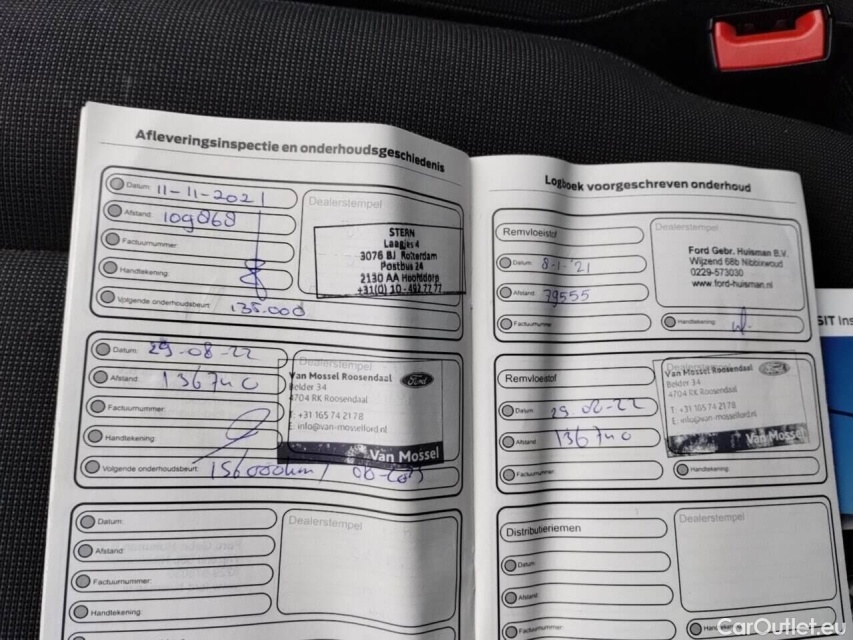 Afleveringsinspectie en onderhoudsgeschiedenis
Datum: 11-11-2021
Afstand: 109868
Factuurnummer:
Handtekening:
Volgende onderhoudsbeurt: 135.000
Dealerstempel
STERN
Laagjes 4
3076 BJ Rotterdam
Postbus 24
2130 AA Hoofddorp
+31(0) 10 - 492 77 77
Datum: 29-08-22
Afstand: 136740
Factuurnummer:
Handtekening:
Volgende onderhoudsbeurt: 156000km/
Dealerstempel
Van Mossel Roosendaal
Ford
Belder 34
4704 RK Roosendaal
T. +31 165 74 21 78
E. info@van-mosselford.nl
Van Mossel
Datum:
Afstand:
Factuurnummer:
Handtekening:
Dealerstempel
Logboek voorgeschreven onderhoud
Remvloeistof
Datum: 8-1-'21
Afstand: 79555
Factuurnummer
Dealerstempel
Ford Gebr. Huisman B.V.
Wijzend 58b Nibbixwoud
0229-573030
www.ford-huisman.nl
Handtekening:
Remvloeistof
Datum: 29 08-22
Afstand: 136740
Factuurnummer:
Dealerstempel
Van Mossel Roosendaal
Ford
Belder 34
4704 RK Roosendaal
T. +31 165 74 21 78
E. info@van-mosselford.nl
Van Mossel
Handtekening:
Distributieriemen
Datum:
Afstand:
Factuurnummer:
Dealerstempel
Handtekening:
CarOutlet.eu